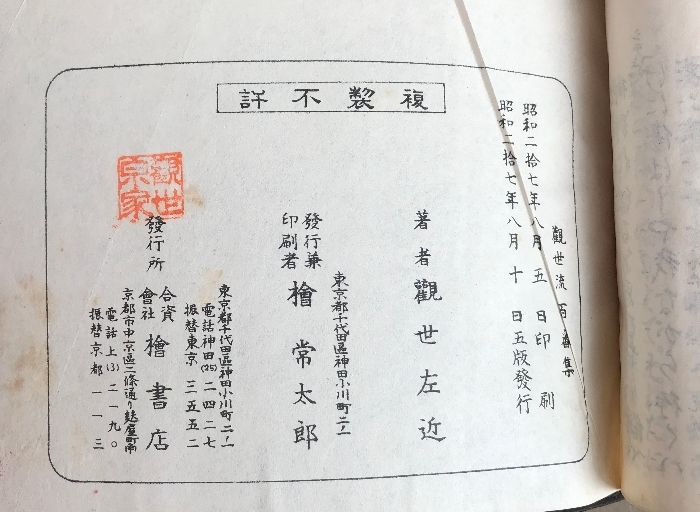 複製不許
觀世流百番集
昭和二拾七年八月五日印刷
昭和二拾七年八月十日五版發行
著者 觀世左近
東京都千代田區神田小川町二ノ一
發行兼
印刷者 檜常太郎
東京都千代田區神田小川町二ノ一
電話神田(25)二四二七
振替東京三五五二
發行所 合資會社 檜書店
京都市中京區二條通り麩屋町南
電話上(3)二一九〇
振替京都一一三
觀世
宗家